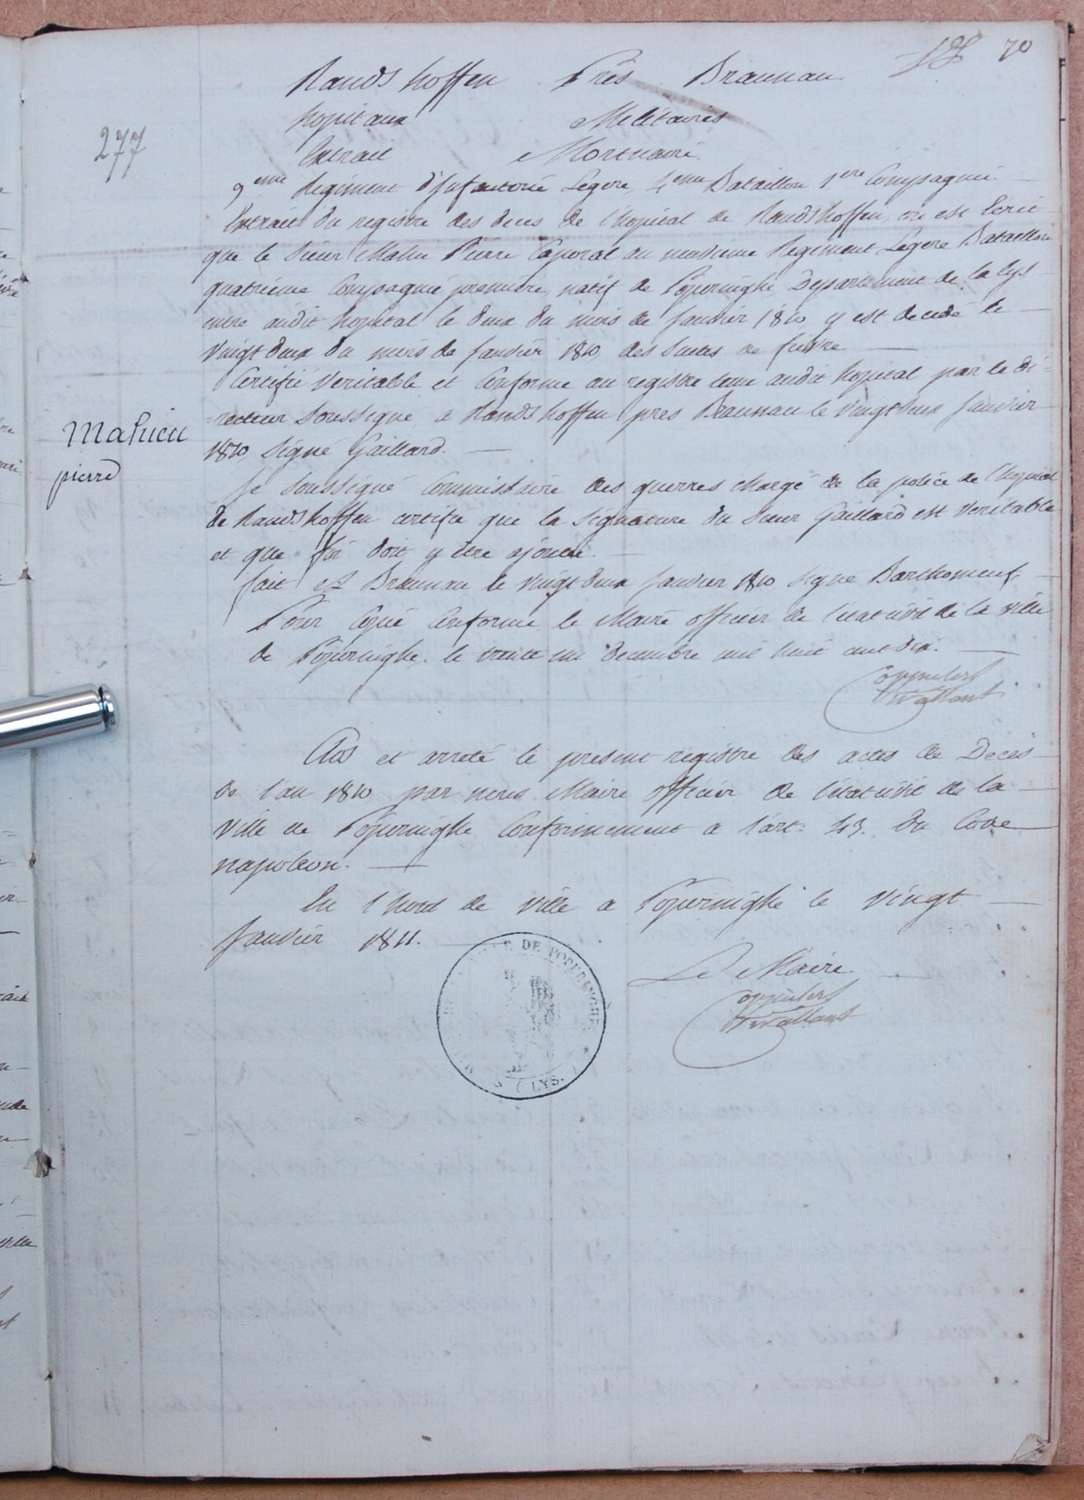 70
Randshoffen Près Braunau
hopitaux Militaires
277
Extrait Mortuaire
9eme Regiment d'Infanterie Légere, 4eme Bataillon 1ere Compagnie.
Extrait du registre des deces de l'hopital de Randshoffen, ou est Ecrit
que le Sieur Mahu Pierre Caporal au neuvieme Regiment Légere Bataillon
quatrieme Compagnie premiere, natif de Poperinghe Departement de la lys
entre audit hopital le deux du mois de Janvier 1810 y est decedé le
Vingt deux du mois de Janvier 1810 des Suites de fievre
Certifié Veritable et Conforme au registre tenu audit hopital par le di=
=recteur Soussigné a Randshoffen près Braunau le Vingt deux Janvier
1810, Signé Gaillard.
Mahieu
pierre
Je Soussigné Commissaire des guerres chargé de la police de l'hopital
de Randshoffen certifie que la Signature du Sieur Gaillard est Veritable
et que foi doit y etre ajouté.
fait a Braunau le Vingt deux Janvier 1810 Signé
Pour Copie Conforme le Maire officier de l'etat civil de la Ville
de Poperinghe. le trente un decembre mil huit cent dix.
Clos et arreté le present registre des actes de Deces
de l'an 1810 par nous Maire officier de l'etat civil de la
Ville de Poperinghe Conformement a l'art. 43. du Code
napoleon.
En l'hotel de ville a Poperinghe le Vingt
Janvier 1811.
DE POPERINGHE
(LYS.)
Le Maire